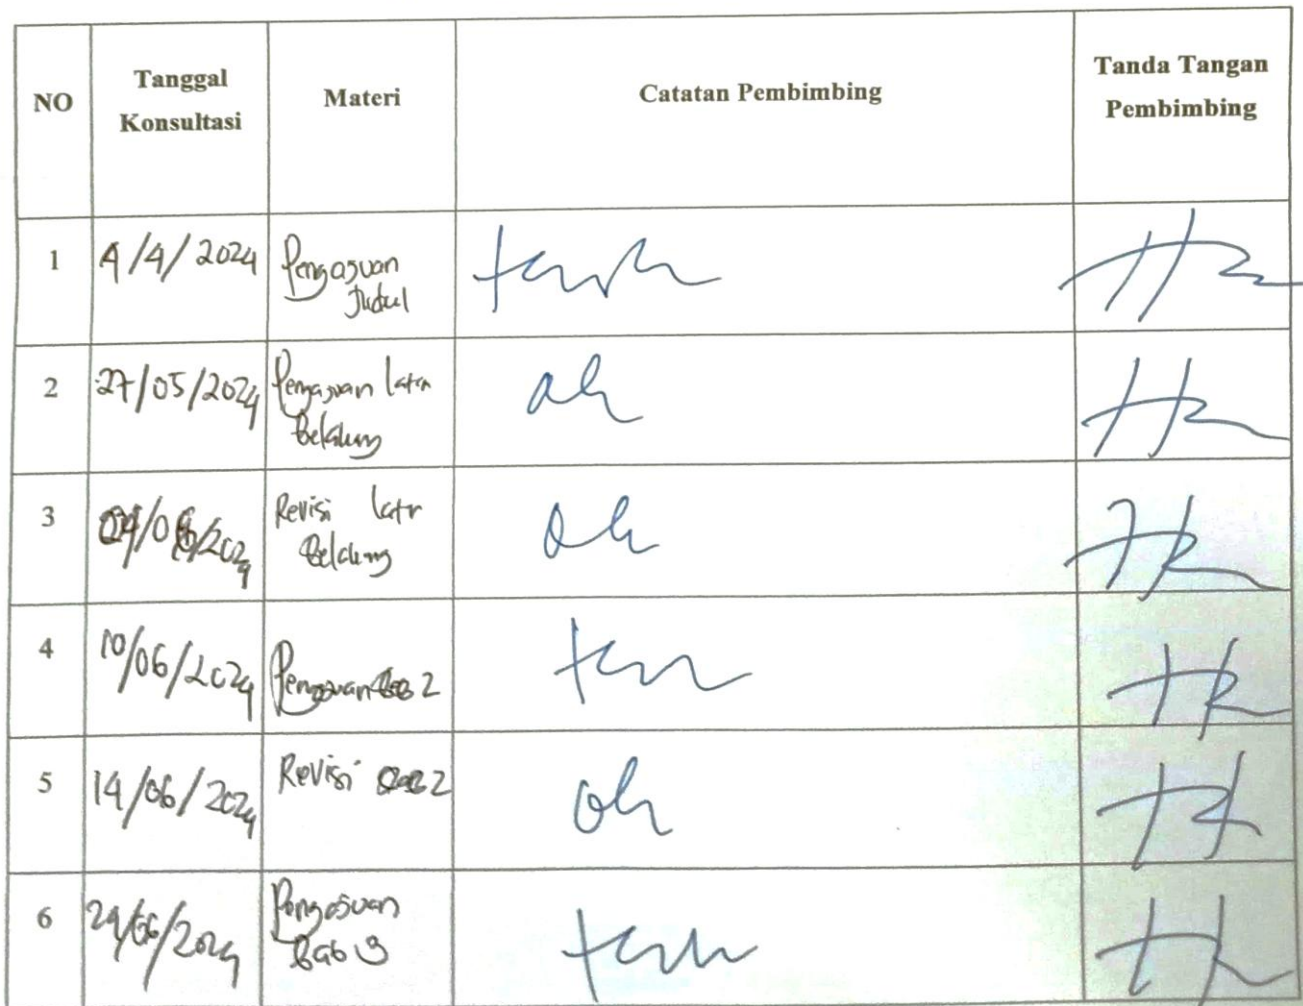 NO
Tanggal
Konsultasi
Materi
Catatan Pembimbing
Tanda Tangan
Pembimbing
1
4/4/2024
Pengajuan
Judul
2
27/05/2024
Pengajuan latar
Belakang
ok
3
04/06/2024
Revisi latar
Belakang
ok
4
10/06/2024
Pengajuan Bab 2
5
14/06/2024
Revisi Bab 2
ok
6
Pengajuan
Bab 3